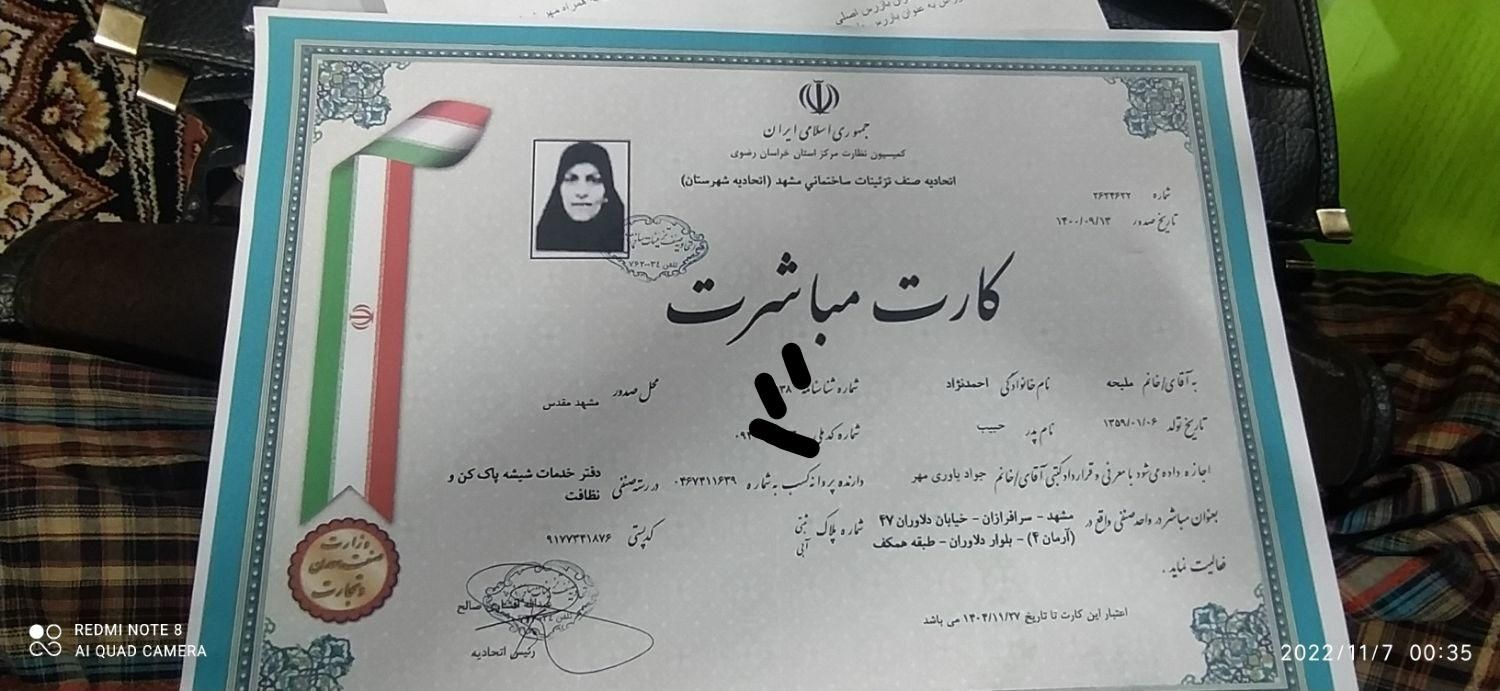 جمهوری اسلامی ایران
کمیسیون نظارت مرکز استان خراسان رضوی
اتحادیه صنف تزئینات ساختمانی مشهد (اتحادیه شهرستان)
شماره ۲۶۳۴۶۳۲
تاریخ صدور ۱۴۰۰/۰۹/۱۳
کارت مباشرت
به آقای/خانم ملیحه نام خانوادگی احمدنژاد شماره شناسنامه ۳۸ محل صدور مشهد مقدس
تاریخ تولد ۱۳۵۹/۰۱/۰۶ نام پدر حبیب شماره کد ملی ۰۹۴
اجازه داده می‌شود با معرفی و قرارداد کتبی آقای/خانم جواد یاوری مهر دارنده پروانه کسب به شماره ۰۴۶۷۴۱۱۶۳۹ در رسته صنفی دفتر خدمات شیشه پاک کن و نظافت
بعنوان مباشر در واحد صنفی واقع در مشهد - سرافرازان - خیابان دلاوران ۴۷ (آرمان ۴) - بلوار دلاوران - طبقه همکف شماره پلاک ثبتی آبی کدپستی ۹۱۷۷۳۴۱۸۷۶
فعالیت نماید .
اعتبار این کارت تا تاریخ ۱۴۰۴/۱۱/۲۷ می باشد
رئیس اتحادیه
وزارت
صنعت، معدن
و تجارت
REDMI NOTE 8
AI QUAD CAMERA
2022/11/7 00:35